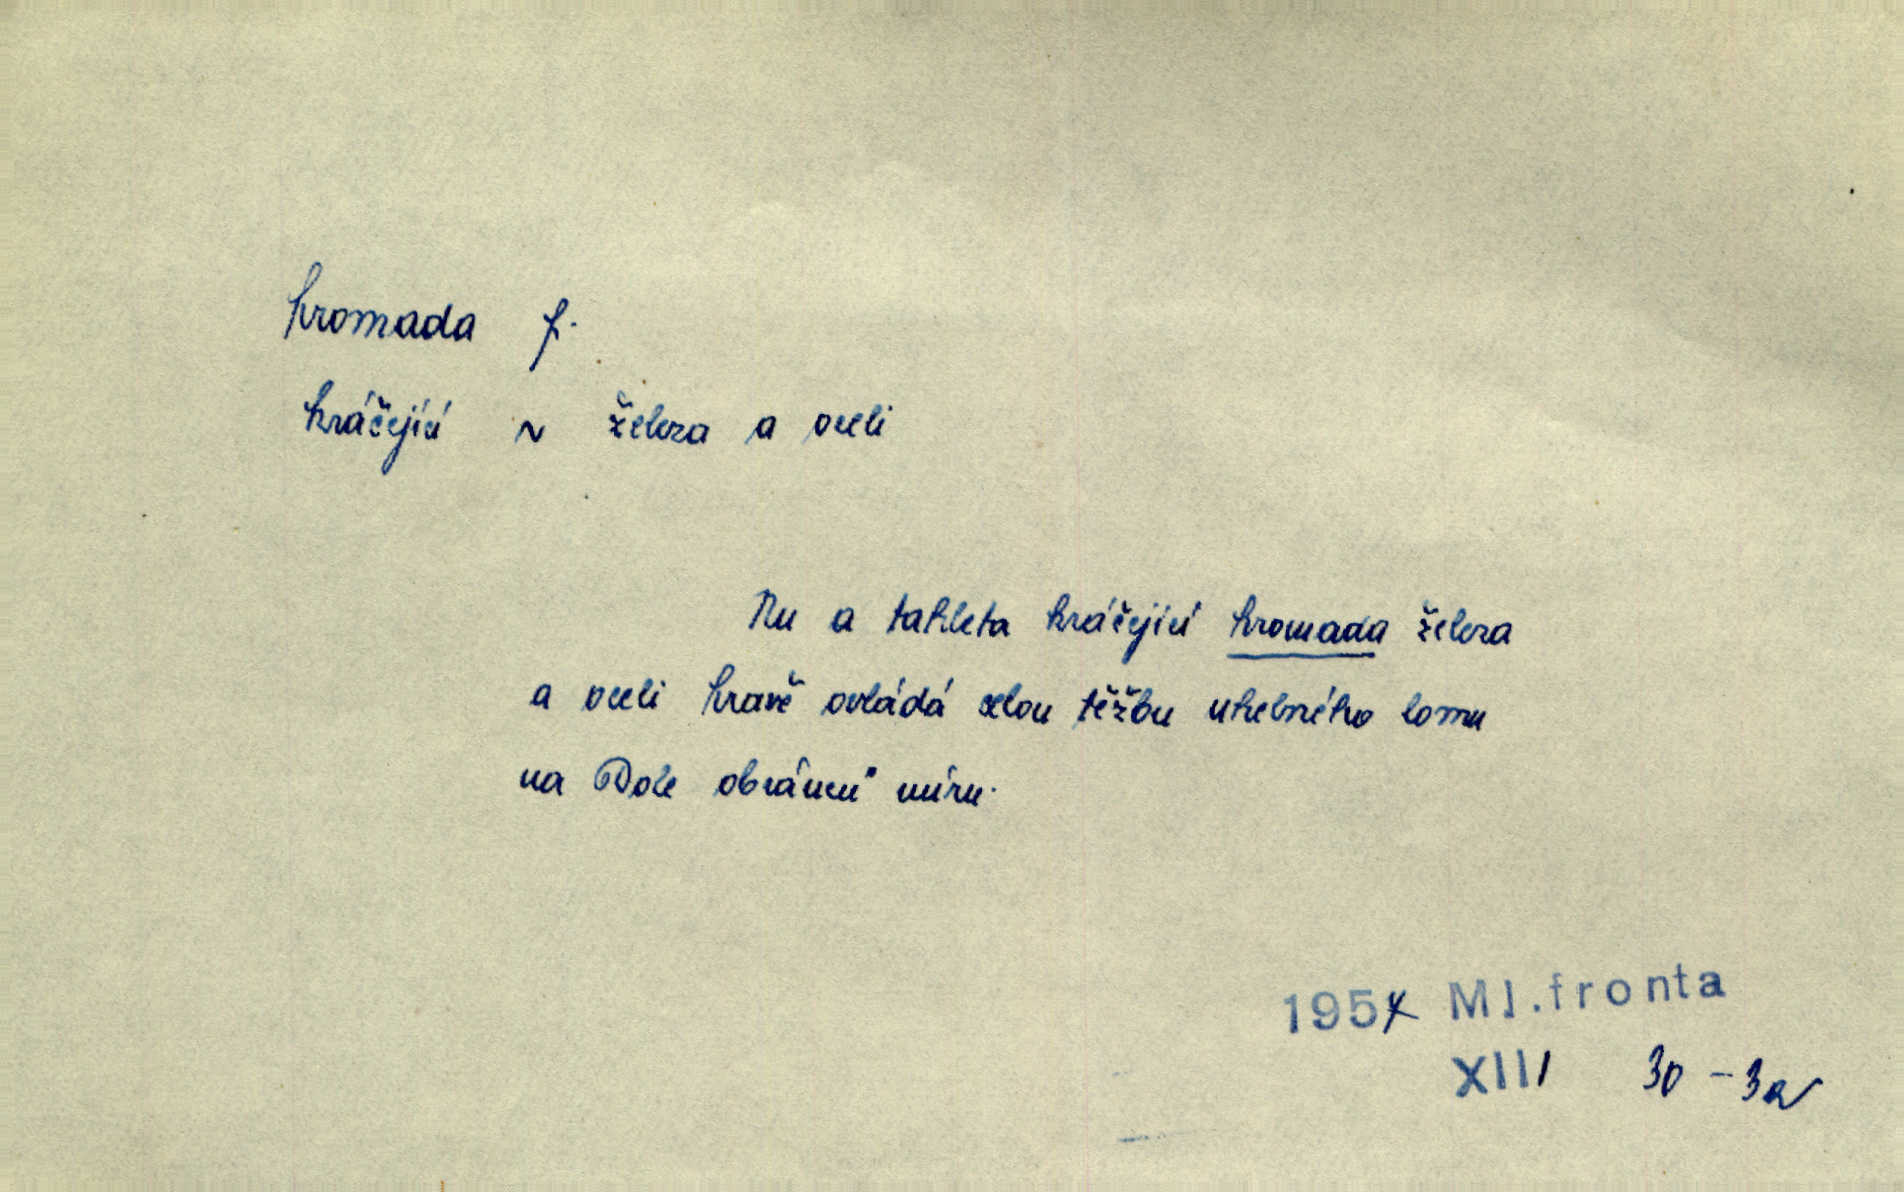 hromada f.
kráčející ~ železa a oceli
Nu a tahleta kráčející hromada železa
a oceli hravě ovládá celou těžbu uhelného lomu
na Dole obránců míru.
1957 Ml.fronta
XIII 30 - 3a